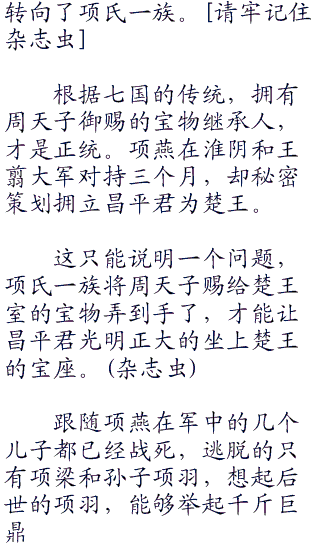 转向了项氏一族。[请牢记住
杂志虫]
根据七国的传统，拥有
周天子御赐的宝物继承人，
才是正统。项燕在淮阴和王
翦大军对持三个月，却秘密
策划拥立昌平君为楚王。
这只能说明一个问题，
项氏一族将周天子赐给楚王
室的宝物弄到手了，才能让
昌平君光明正大的坐上楚王
的宝座。(杂志虫)
跟随项燕在军中的几个
儿子都已经战死，逃脱的只
有项梁和孙子项羽，想起后
世的项羽，能够举起千斤巨
鼎